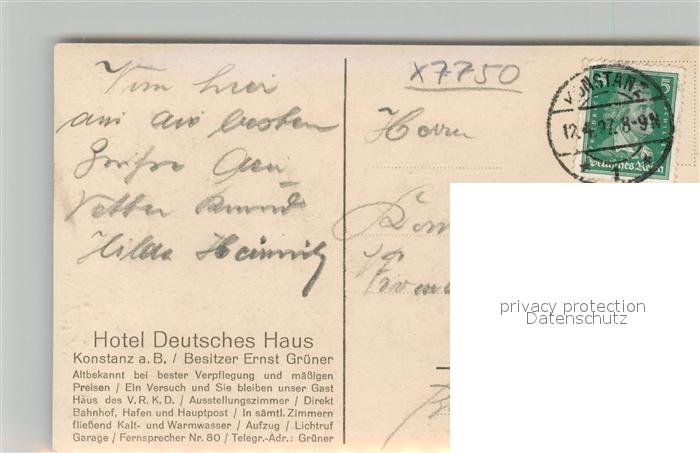 Von hier
aus die besten
Grüße
Vetter
Hilde
X7750
Herrn
KONSTANZ
12.4.27. 8-9N
Deutsches Reich
Hotel Deutsches Haus
Konstanz a. B. / Besitzer Ernst Grüner
Altbekannt bei bester Verpflegung und mäßigen
Preisen / Ein Versuch und Sie bleiben unser Gast
Haus des V. R. K. D. / Ausstellungszimmer / Direkt
Bahnhof, Hafen und Hauptpost / In sämtl. Zimmern
fließend Kalt- und Warmwasser / Aufzug / Lichtruf
Garage / Fernsprecher Nr. 80 / Telegr.-Adr.: Grüner
privacy protection
Datenschutz